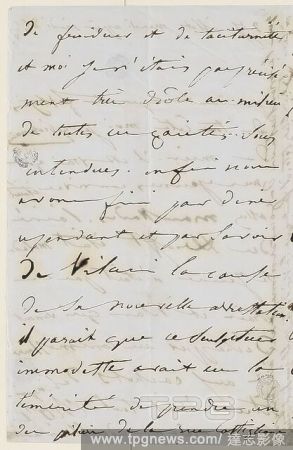 de froideur et de taciturnité
et moi je n'étais pas précisé
ment très drôle au milieu
de toutes ces gaietés. Sous
entendues. enfin nous
avons fini par
cependant et par savoir
de Vilain la cause
de sa nouvelle arrestation.
il parait que ce sculpteur
immodeste avait eu la
témérité de prendre un
du de la rue
www.tpgnews.com / 達志影像